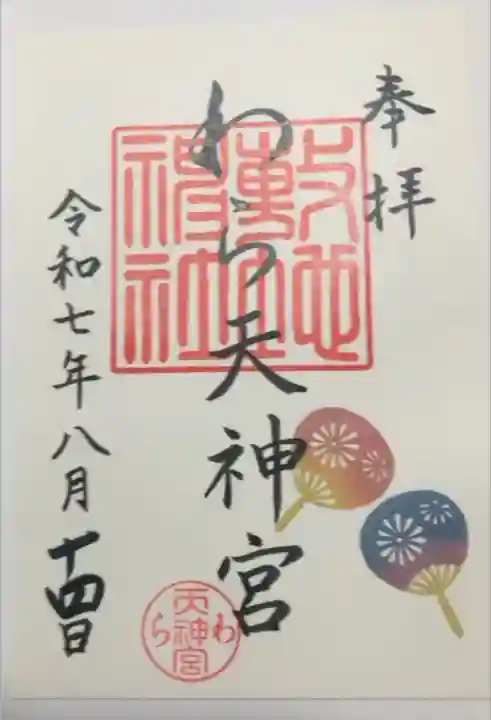 奉拝
わら天神宮
敷地神社
令和七年八月十四日
わら天神宮